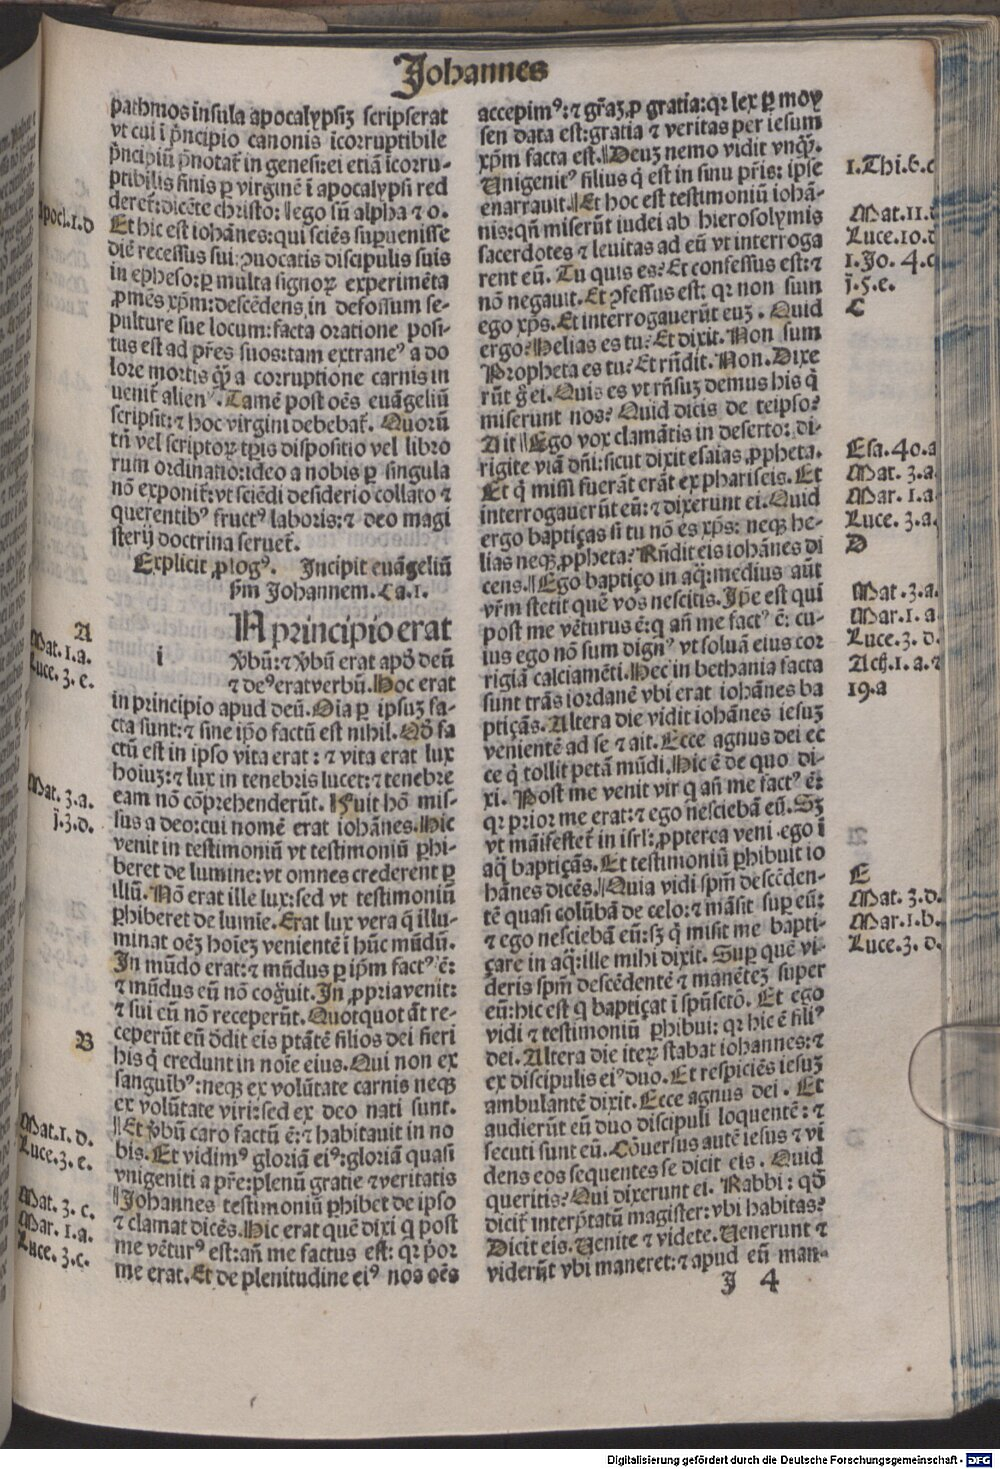 Johannes
pathmos insula apocalypsiʒ scripserat
vt cui ī p̄ncipio canonis icorruptibile
p̄ncipiū p̄notat̄ in genesi: ei etiā icorru-
ptibilis finis ꝑ virginē ī apocalypsi red
deret̄: dicēte christo: ‖ ego sū alpha ⁊ o.
Et hic est iohānes: qui sciēs supuenisse
diē recessus sui: ꝯuocatis discipulis suis
in epheso: ꝑ multa signoꝝ experimēta
ꝓmēs xp̄m: descēdens in defossum se-
pulture sue locum: facta oratione posi-
tus est ad pr̄es suos: tam extraneꝰ a do
lore mortis qꝫ̄ a corruptione carnis in
uenit̄ alienꝰ. Tamē post oēs euāgeliū
scripsit: ⁊ hoc virgini debebat̄. Quorū
tn̄ vel scriptoꝝ tꝑis dispositio vel libro
rum ordinatio: ideo a nobis ꝑ singula
nō exponit̄: vt sciēdi desiderio collato ⁊
querentibꝰ fructꝰ laboris: ⁊ deo magi
sterij doctrina seruet̄.
Explicit ꝓlogꝰ. Incipit euāgeliū
ẜm Johannem. Ca. 1.
i
IN principio erat
v̄bū: ⁊ v̄bū erat apō deū
⁊ deꝰ erat verbū. Hoc erat
in principio apud deū. Oīa ꝑ ipsuʒ fa-
cta sunt: ⁊ sine ip̄o factū est nihil. Qō fa
ctū est in ipso vita erat: ⁊ vita erat lux
hoīuʒ: ⁊ lux in tenebris lucet: ⁊ tenebre
eam nō cōprehenderūt. ‖ Fuit hō mis-
sus a deo: cui nomē erat iohānes. Hic
venit in testimoniū vt testimoniū ꝑhi-
beret de lumine: vt omnes crederent ꝑ
illū. Nō erat ille lux: sed vt testimoniū
ꝑhiberet de lumīe. Erat lux vera q̄ illu-
minat oēʒ hoīeʒ venientē ī hūc mūdū.
In mūdo erat: ⁊ mūdus ꝑ ip̄m factꝰ ē:
⁊ mūdus eū nō coḡuit. In ꝓpria venit:
⁊ sui eū nō receperūt. Quotquot āt re-
ceperūt eū ōdit eis ptātē filios dei fieri
his q̄ credunt in noīe eius. Qui non ex
sanguībꝰ: neqꝫ ex volūtate carnis neqꝫ
ex volūtate viri: sed ex deo nati sunt.
‖ Et v̄bū caro factū ē: ⁊ habitauit in no
bis. Et vidimꝰ gloriā eiꝰ: gloriā quasi
vnigeniti a pr̄e: plenū gratie ⁊ veritatis
‖ Johannes testimoniū ꝑhibet de ipso
⁊ clamat dicēs. Hic erat quē dixi q post
me vēturꝰ est: añ me factus est: qꝛ p̄or
me erat. Et de plenitudine eiꝰ nos oēs
Apocl. 1. d
A
Mat. 1. a.
Luce. 3. e.
Mat. 3. a.
j. 3. d.
B
Mat. 1. d.
Luce. 3. e.
Mat. 3. c.
Mar. 1. a.
Luce. 3. c.
accepimꝰ: ⁊ gr̄aʒ ꝓ gratia: qꝛ lex ꝑ moy
sen data est: gratia ⁊ veritas per iesum
xp̄m facta est. ‖ Deuʒ nemo vidit vnqꝫ̄.
Unigenitꝰ filius q̄ est in sinu pr̄is: ipse
enarrauit. ‖ Et hoc est testimoniū iohā-
nis: qn̄ miserūt iudei ab hierosolymis
sacerdotes ⁊ leuitas ad eū vt interroga
rent eū. Tu quis es? Et confessus est: ⁊
nō negauit. Et ꝯfessus est: qꝛ non sum
ego xp̄s. Et interrogauerūt euʒ. Quid
ergo? Helias es tu? Et dixit. Non sum
Propheta es tu? Et rn̄dit. Non. Dixe
rūt g̊ ei. Quis es vt rn̄suʒ demus his q̄
miserunt nos? Quid dicis de teipso?
Ait ‖ Ego vox clamātis in deserto: di-
rigite viā dn̄i: sicut dixit esaias ꝓpheta.
Et q̄ missi fuerāt erāt ex phariseis. Et
interrogauerūt eū: ⁊ dixerunt ei. Quid
ergo baptiças si tu nō es xp̄s: neqꝫ he-
lias neqꝫ ꝓpheta? Rn̄dit eis iohānes di
cens. ‖ Ego baptiço in aq̄: medius aūt
vr̄m stetit quē vos nescitis. Ip̄e est qui
post me vēturus ē: q añ me factꝰ ē: cu-
ius ego nō sum dignꝰ vt soluā eius cor
rigiā calciamēti. Hec in bethania facta
sunt trās iordanē vbi erat iohānes ba
ptiçās. Altera die vidit iohānes iesuʒ
venientē ad se ⁊ ait. Ecce agnus dei ec
ce q̄ tollit petā mūdi. Hic ē de quo di-
xi. Post me venit vir q añ me factꝰ ē:
qꝛ prior me erat: ⁊ ego nesciebā eū. Sʒ
vt māifestet̄ in isrl̄: ꝓpterea veni ego ī
aq̄ baptiçās. Et testimoniū ꝑhibuit io
hānes dicēs. ‖ Quia vidi spm̄ descēden-
tē quasi colūbā de celo: ⁊ māsit suꝑ eū:
⁊ ego nesciebā eū: sʒ q̄ misit me bapti-
çare in aq̄: ille mihi dixit. Suꝑ quē vi-
deris spm̄ descēdentē ⁊ manēteʒ super
eū: hic est q baptiçat ī spūsctō. Et ego
vidi ⁊ testimoniū ꝑhibui: qꝛ hic ē filiꝰ
dei. Altera die iteꝝ stabat iohannes: ⁊
ex discipulis eiꝰ duo. Et respiciēs iesuʒ
ambulantē dixit. Ecce agnus dei. Et
audierūt eū duo discipuli loquentē: ⁊
secuti sunt eū. Cōuersus autē iesus ⁊ vi
dens eos sequentes se dicit eis. Quid
queritis? Qui dixerunt ei. Rabbi: qō
dicit̄ interp̄tatū magister: vbi habitas?
Dicit eis. Uenite ⁊ videte. Uenerunt ⁊
viderūt vbi maneret: ⁊ apud eū man-
J 4
1. Thi. 6. d
Mat. 11. d
Luce. 10. d
1. Jo. 4. c
j. 5. e.
C
Esa. 40. a
Mat. 3. a.
Mar. 1. a.
Luce. 3. a.
D
Mat. 3. a.
Mar. 1. a.
Luce. 3. d.
Act. 1. a. ⁊
19. a
E
Mat. 3. d.
Mar. 1. b.
Luce. 3. d.
Digitalisierung gefördert durch die Deutsche Forschungsgemeinschaft - DFG